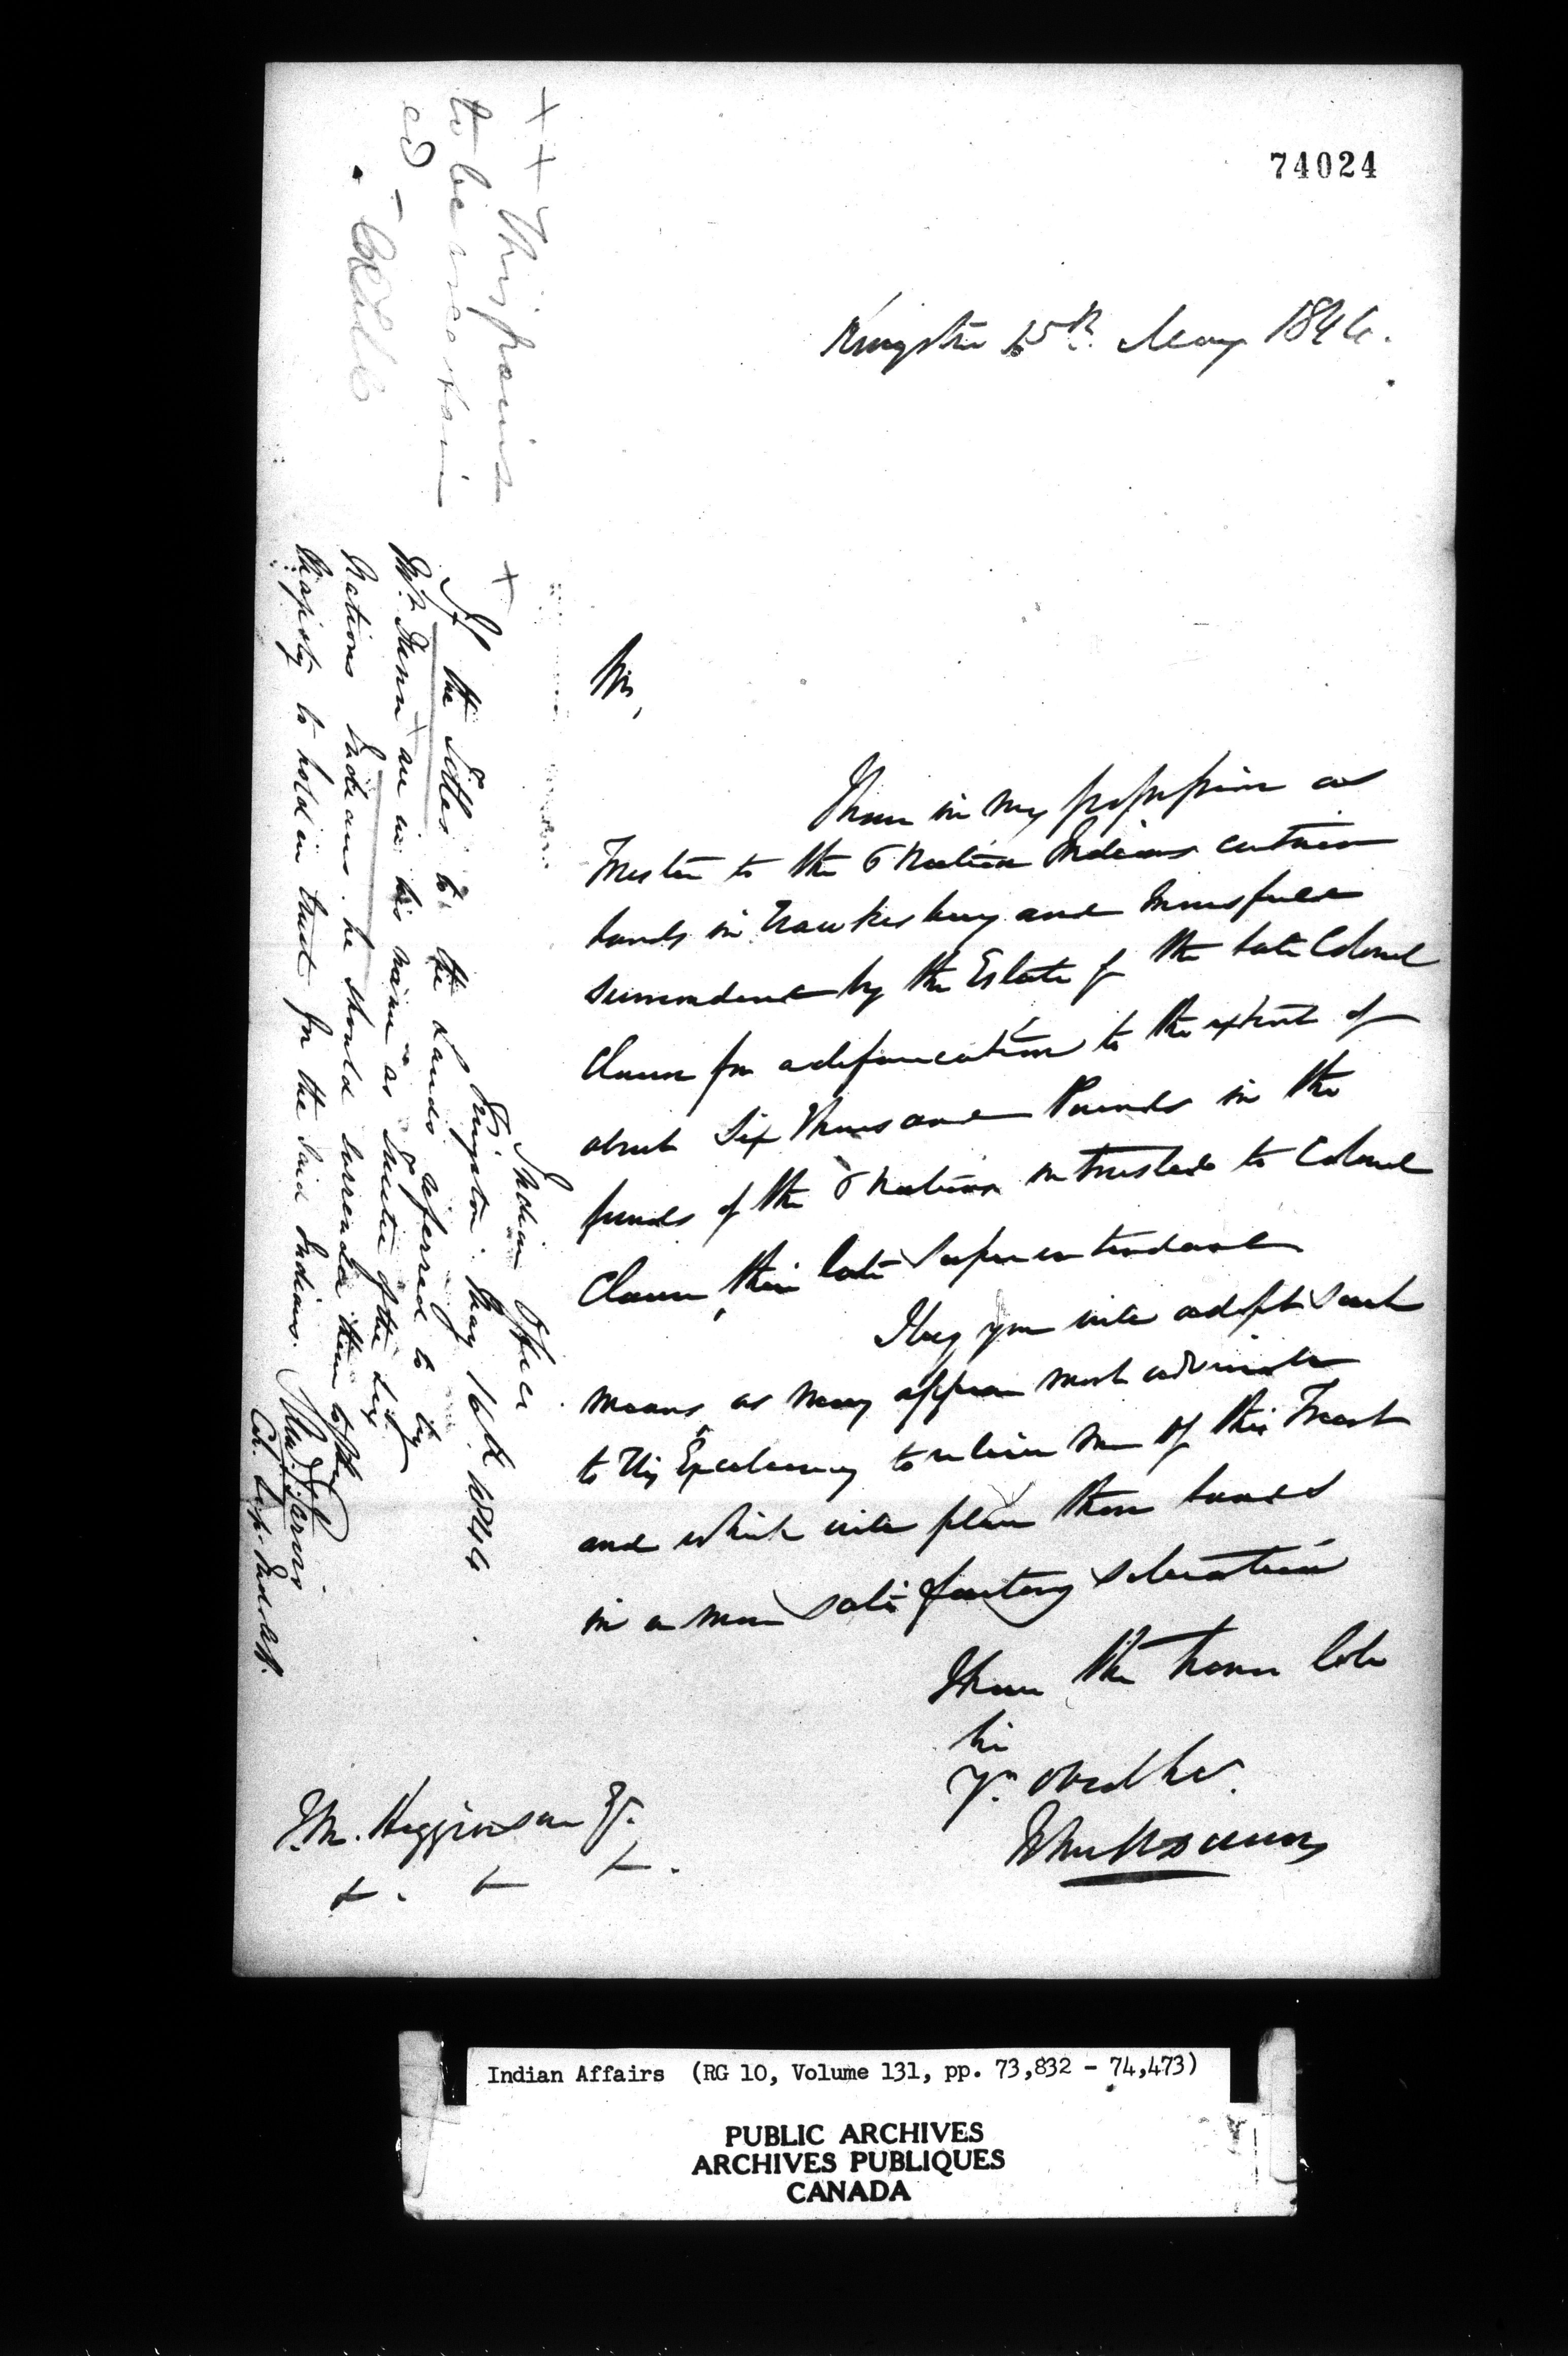 74024
Kingston 15th. May 1844.
Sir,
I have in my possession as
Trustee to the 6 Nation Indians certain
lands in Hawkesbury and Innisfield
surrendered by the Estate of the late Colonel
Claus for a defalcation to the extent of
about Six Thousand Pounds in the
funds of the 6 Nations intrusted to Colonel
Claus, their late Superintendant
I beg you will adopt such
means as may appear most advisable
to His Excellency to relieve me of this Trust
and which will place these lands
in a more satisfactory situation
I have the honor to be
Sir
Yr. Obed Ser.
John H Dunn
J.M. Higginson Esq.
+ + This point
to be ascertain
ed -
Indian Office
Kingston. May 16th 1844
+ If the Titles to the Lands referred to by
Mr. Dunn + are in his name as Trustee of the Six
Nations Indians. he should surrender them to Her
Majesty to hold in trust for the said Indians.
Saml. P. Jarvis
Ch. Sup. Ind. Aff.
Indian Affairs (RG 10, Volume 131, pp. 73,832 - 74,473)
PUBLIC ARCHIVES
ARCHIVES PUBLIQUES
CANADA